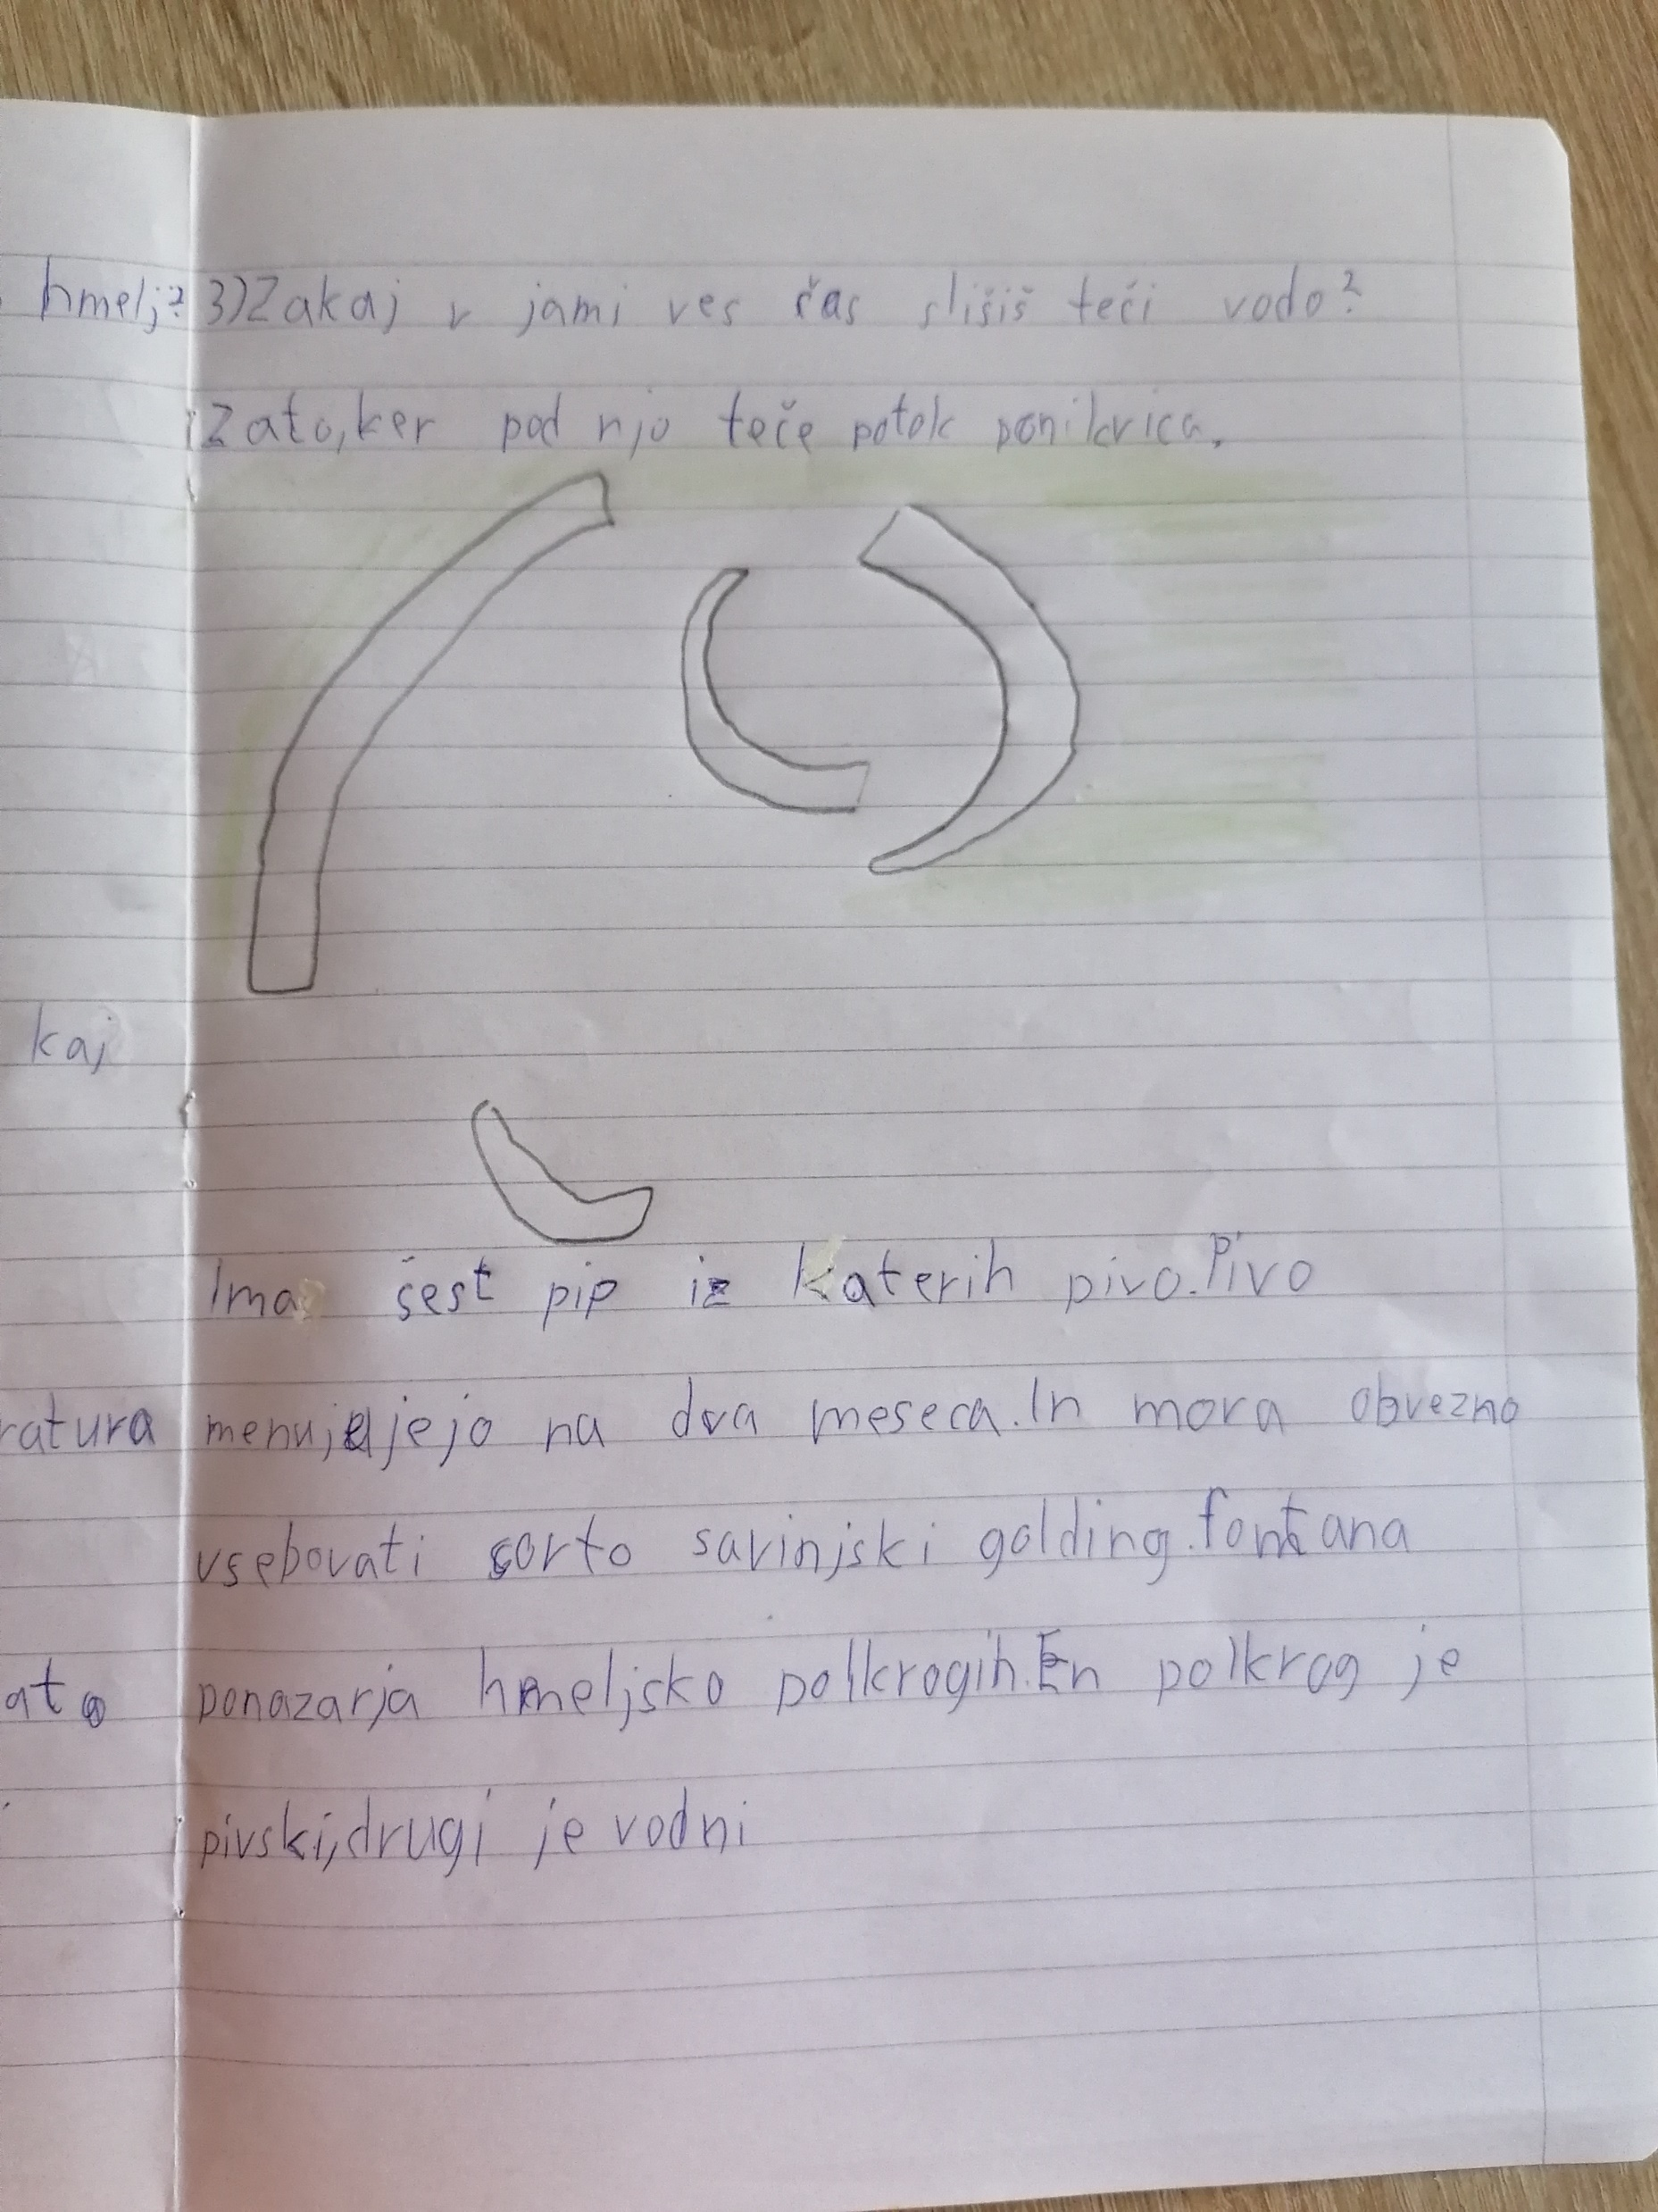 hmelj? 3)Zakaj v jami ves čas slišiš teči vodo?
Zato,ker pod njo teče potok ponikvica.
kaj
Ima šest pip iz katerih pivo.Pivo
ratura menujejo na dva meseca.In mora obvezno
vsebovati sorto savinjski golding.fontana
ato ponazarja hmeljsko polkrogih.En polkrog je
pivski,drugi je vodni